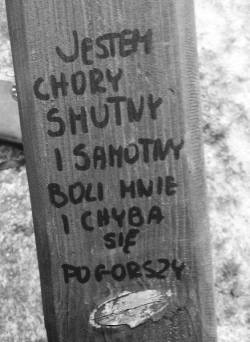 JESTEM
CHORY
SMUTNY
I SAMOTNY
BOLI MNIE
I CHYBA
SIĘ
POGORSZY